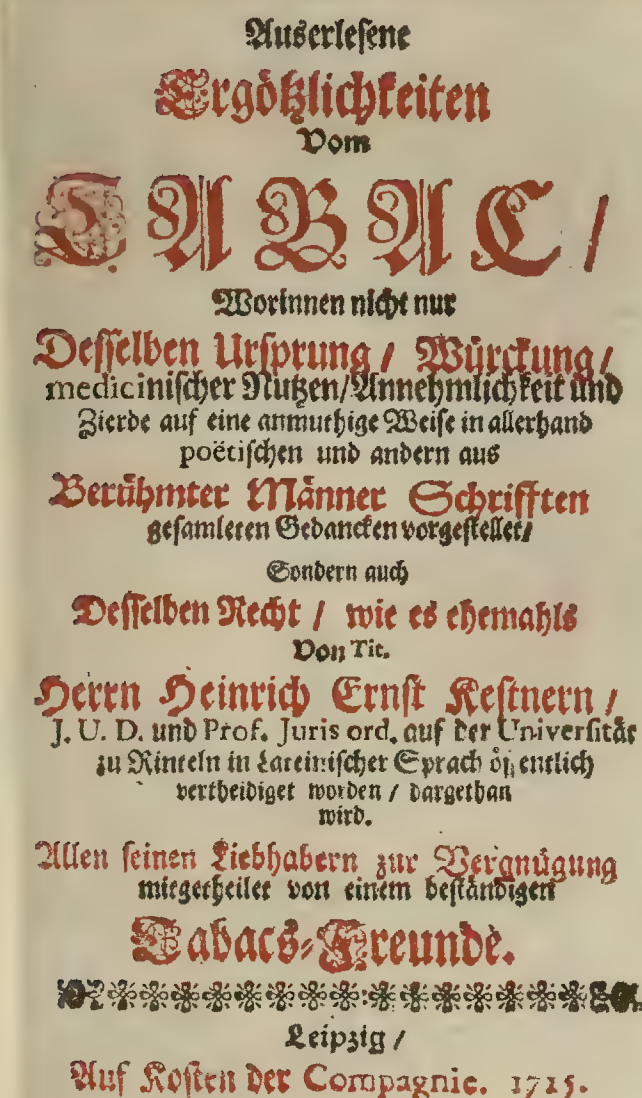 Auserlesene
Ergötzlichkeiten
Vom
TABAC /
Worinnen nicht nur
Desselben Ursprung / Würckung /
medicinischer Nutzen / Annehmlichkeit und
Zierde auf eine anmuthige Weise in allerhand
poëtischen und andern aus
Berühmter Männer Schrifften
gesamleten Gedancken vorgestellet /
Sondern auch
Desselben Recht / wie es ehemahls
Von Tit.
Herrn Heinrich Ernst Kestnern /
J. U. D. und Prof. Juris ord. auf der Universität
zu Rinteln in Lateinischer Sprach öffentlich
vertheidiget worden / dargethan
wird.
Allen seinen Liebhabern zur Vergnügung
mitgetheilet von einem beständigen
Tabacs-Freunde.
Leipzig /
Auf Kosten der Compagnie. 1715.